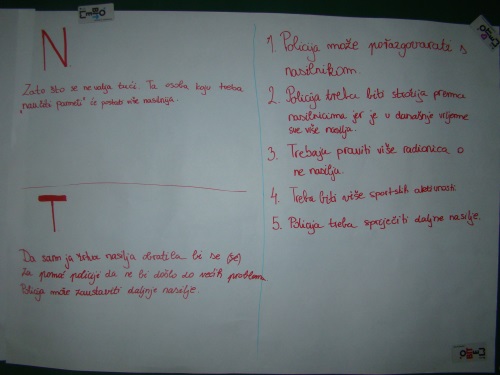 N
Zato što se ne valja tući. Ta osoba koju treba
"naučiti pameti" će postati više nasilnija.
T
Da sam ja žrtva nasilja obratila bi se (še)
za pomoć policiji da ne bi došlo do većih problema.
Policija može zaustaviti daljnje nasilje.
1. Policija može porazgovarati s
nasilnikom.
2. Policija treba biti strožija prema
nasilnicima jer je u današnje vrijeme
sve više nasilja.
3. Trebaju praviti više radionica o
ne nasilju.
4. Treba biti više sportskih aktivnosti.
5. Policija treba spriječiti daljnje nasilje.